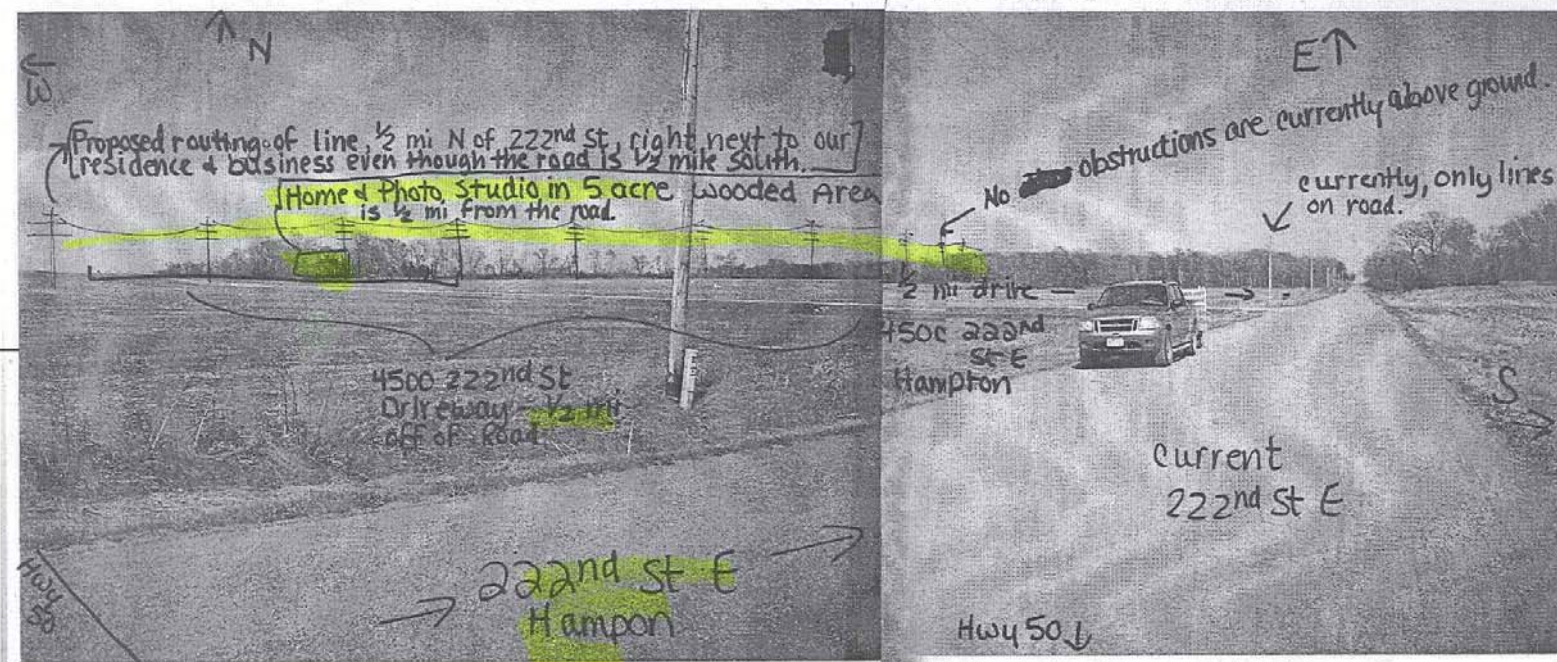 N
W
Proposed routing of line, 1/2 mi N of 222nd St, right next to our
residence & business even though the road is 1/2 mile South.
Home & Photo Studio in 5 acre wooded Area
is 1/2 mi from the road.
4500 222nd St
Driveway - 1/2 mi
off of Road
222nd St E
Hampon
Hwy
50
E
No obstructions are currently above ground.
currently, only lines
on road.
1/2 mi drive
4500 222nd
St E
Hampton
S
current
222nd St E
Hwy 50